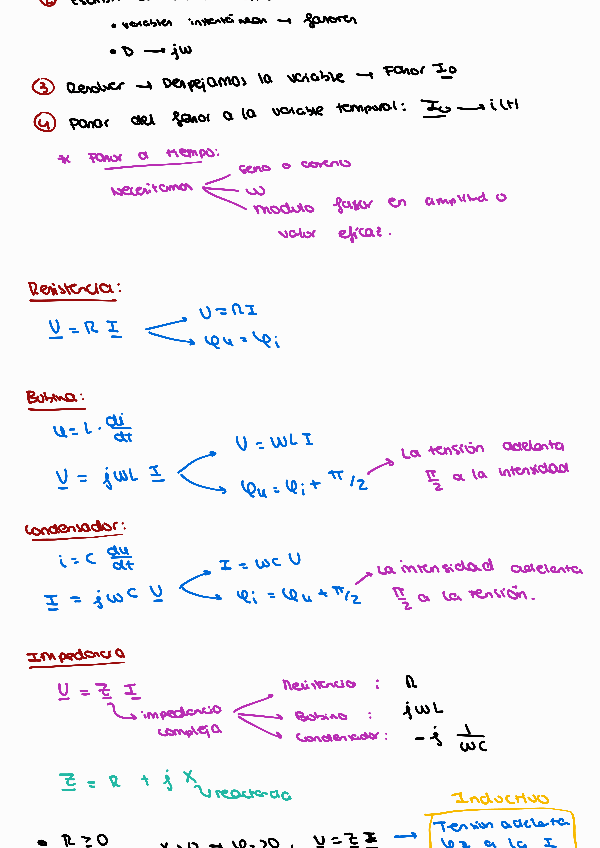 • variables intensidad → fasores
• D → jω
③ Resolver → Despejamos la variable → Fasor I₀
④ Pasar del fasor a la variable temporal: I₀ → i(t)
* Fasor a tiempo:
Necesitamos
seno o coseno
ω
modulo fasor en amplitud o
valor eficaz.
Resistencia:
U = R I
U = R I
φu = φi
Bobina:
u = L · di/dt
U = jωL I
U = ωL I
φu = φi + π/2
La tensión adelanta
π/2 a la intensidad
Condensador:
i = C du/dt
I = jωC U
I = ωC U
φi = φu + π/2
La intensidad adelanta
π/2 a la tensión.
Impedancia
U = Z I
impedancia
compleja
Resistencia : R
Bobina : jωL
Condensador: -j 1/ωC
Z = R + j X
reactancia
Inductivo
• R ≥ 0
U = Z I →
Tensión adelanta
φz a la I